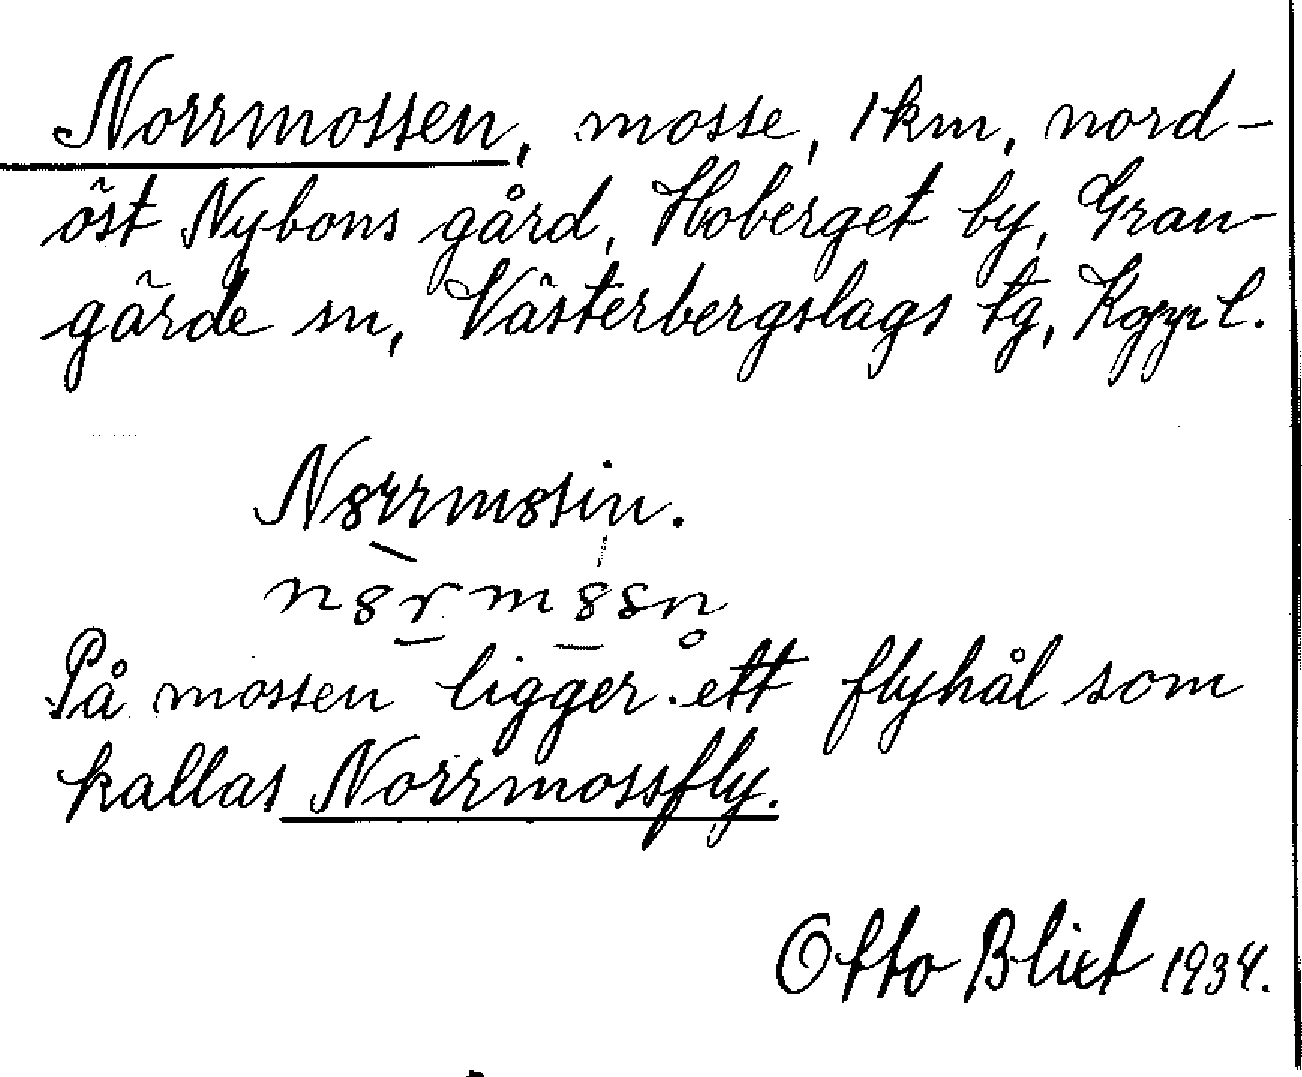 Norrmossen, mosse, 1 km, nord-
öst Nybons gård, Hoberget by, Gran-
gärde sn, Västerbergslags tg, Kopp l.
N8rrm8sin.
n8rm8sn̥
På mossen ligger ett flyhål som
kallas Norrmossfly.
Otto Blixt 1934.